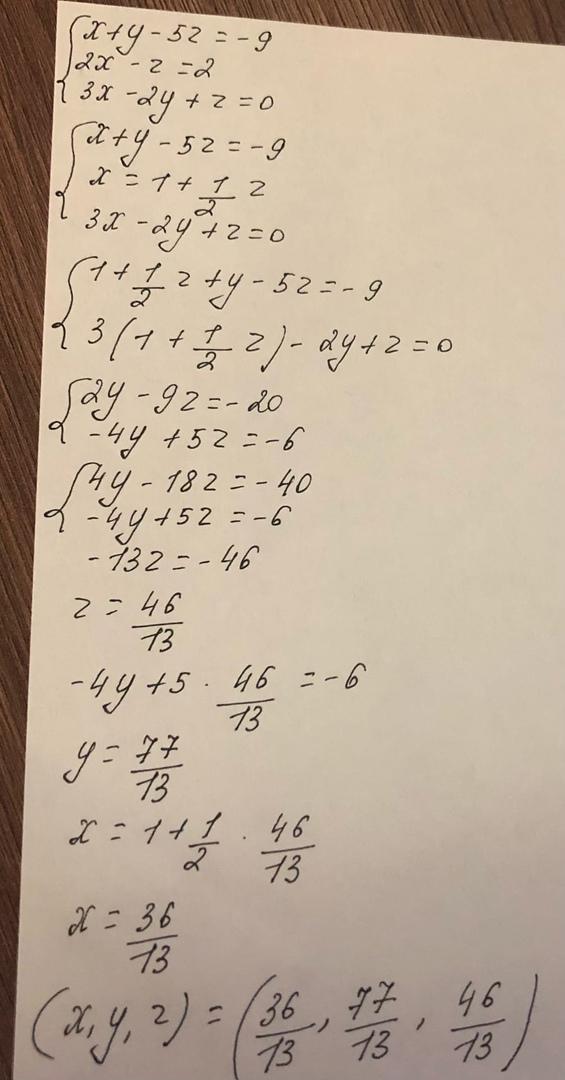 x+y-5z=-9
2x-z=2
3x-2y+z=0
x+y-5z=-9
x=1+1/2 z
3x-2y+z=0
1+1/2 z+y-5z=-9
3(1+1/2 z)-2y+z=0
2y-9z=-20
-4y+5z=-6
4y-18z=-40
-4y+5z=-6
-13z=-46
z=46/13
-4y+5·46/13=-6
y=77/13
x=1+1/2·46/13
x=36/13
(x,y,z)=(36/13,77/13,46/13)